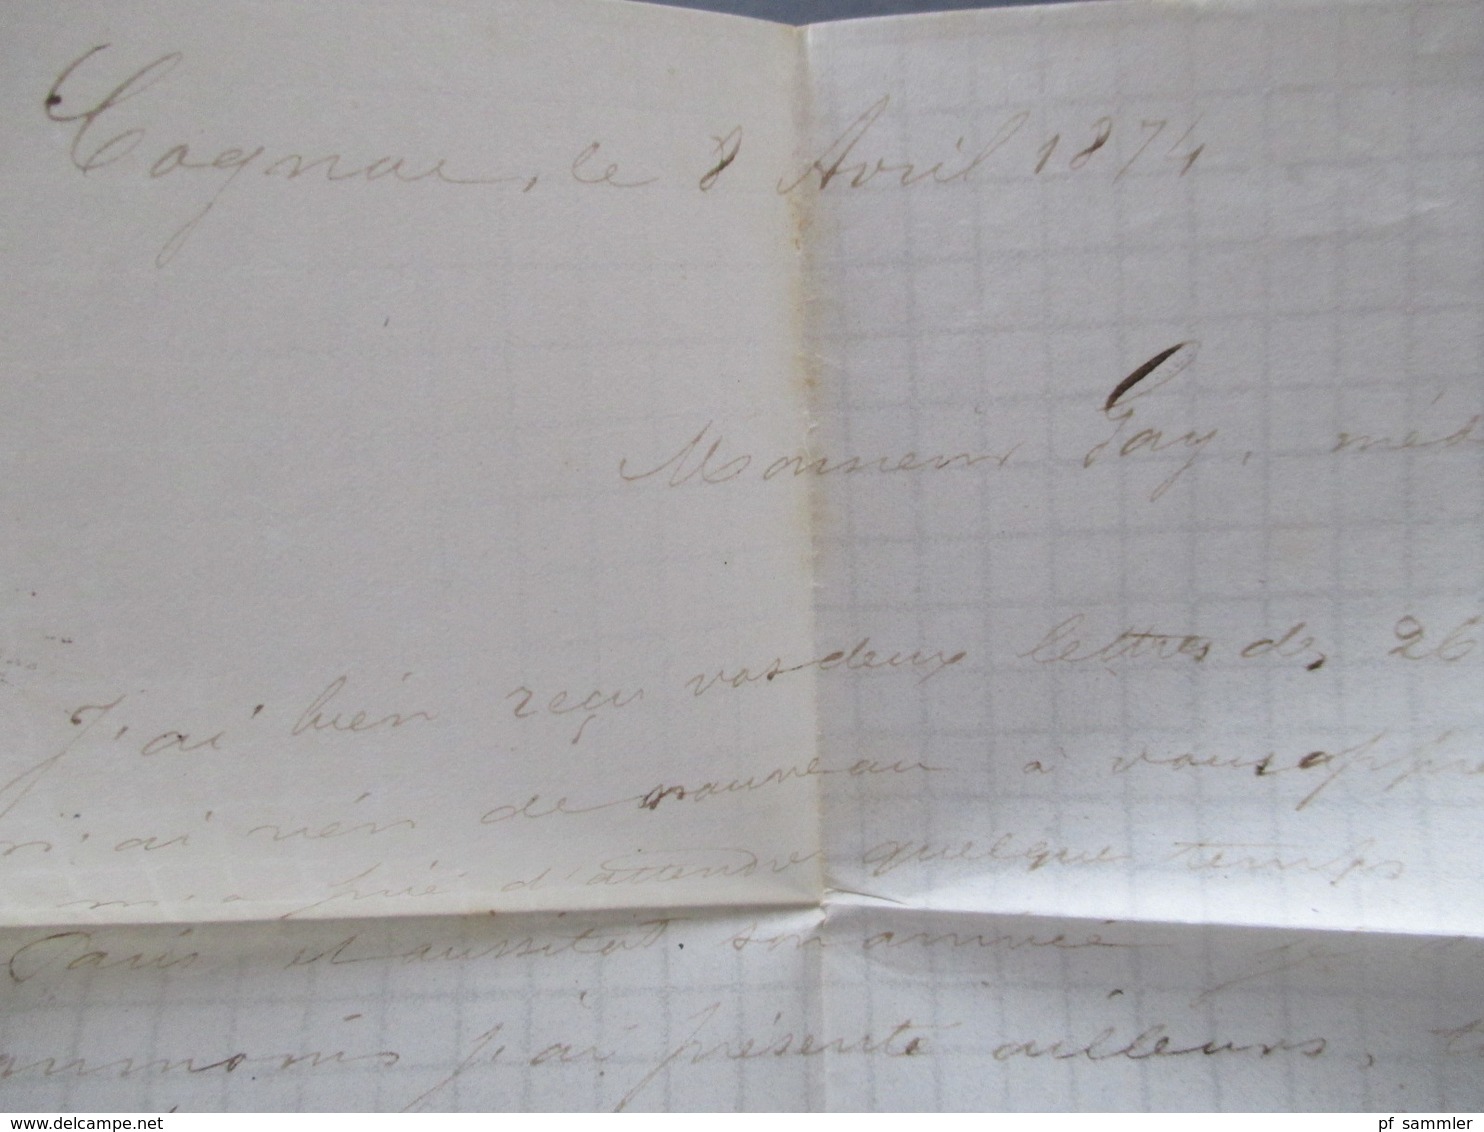 Cognac, le 8 Avril 1874
Monsieur Gay, méd
J'ai bien reçu vos deux lettres des 26
n'ai rien de nouveau à vous appre
m'a prié d'attendre quelque temps
Paris et aussitôt son arrivée je
j'ai présenté ailleurs,
www.delcampe.net
pf_sammler